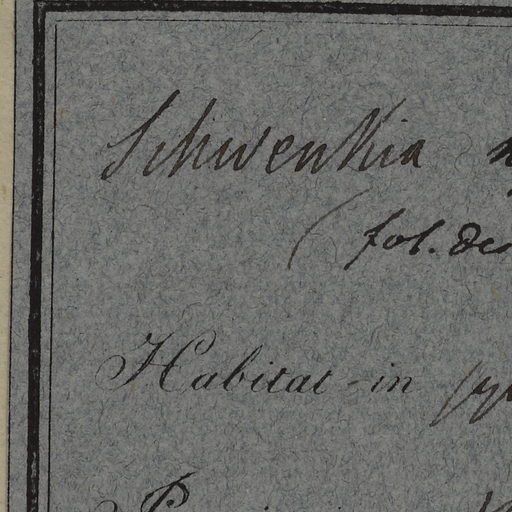 Schwenkia
(fol. des
Habitat in